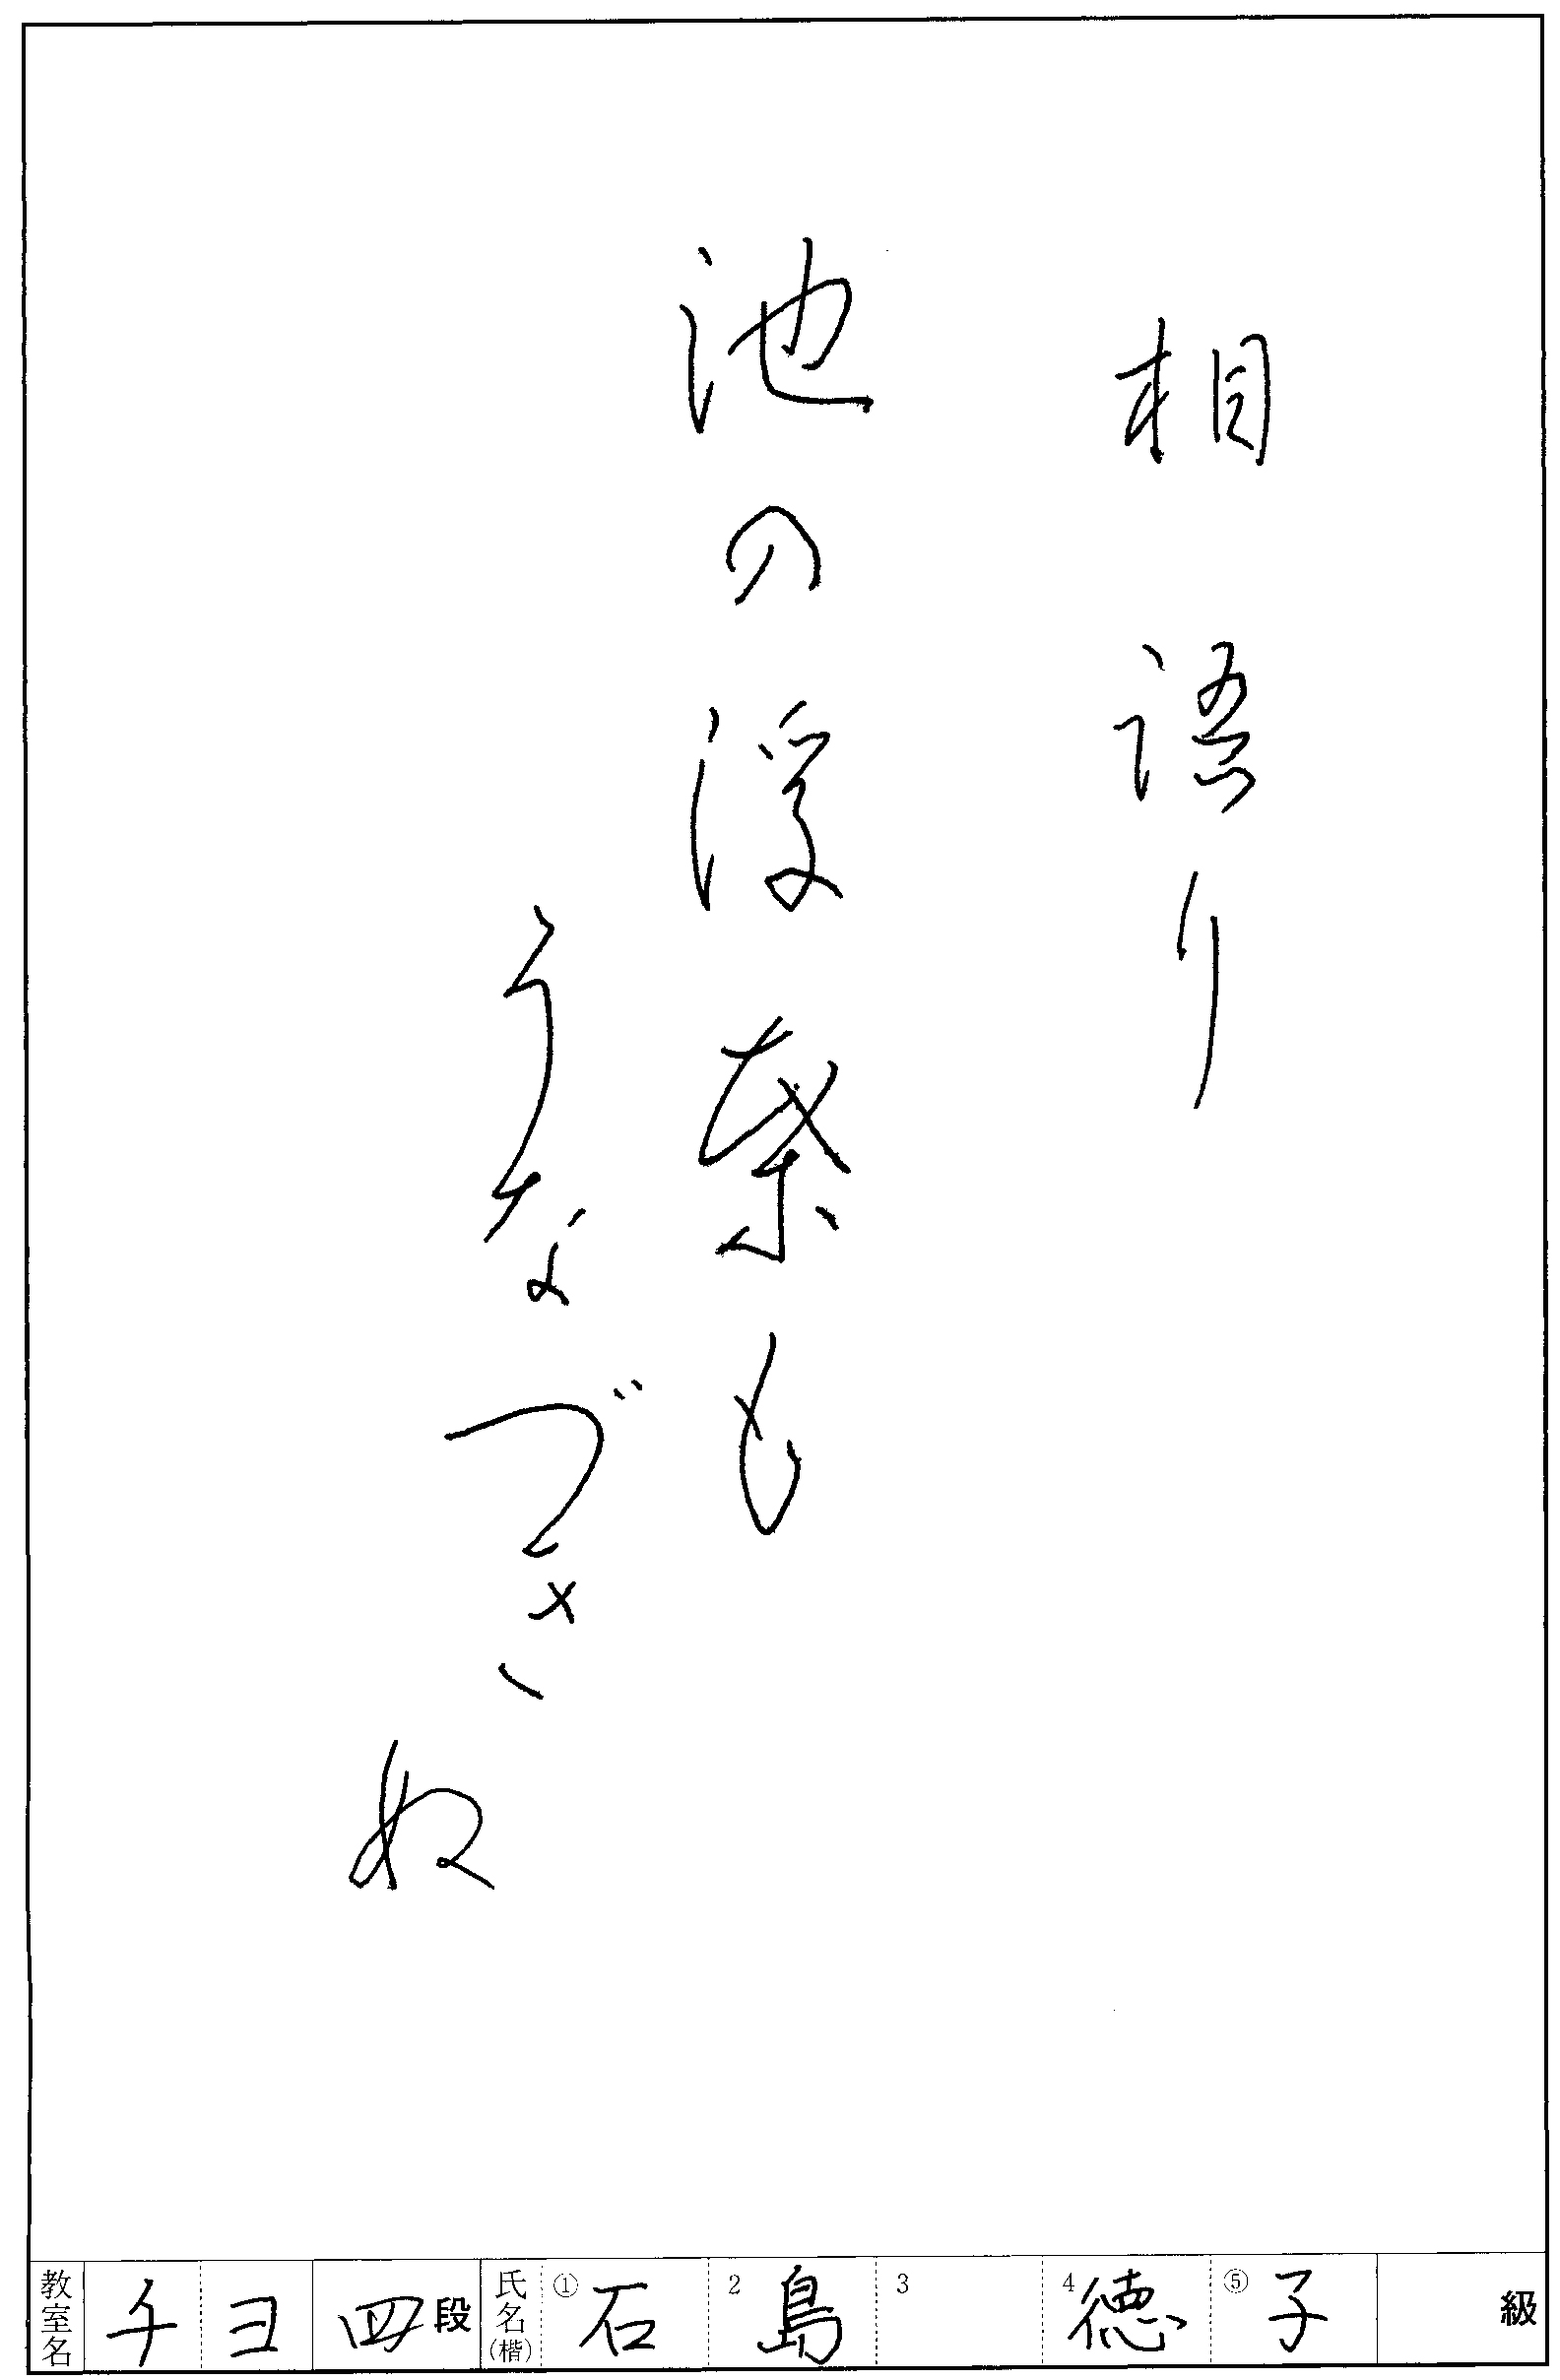 相語り
池の浮葉も
うなづきぬ
教室名 チヨ 四段 氏名(楷) ①石 2島 3 4徳 ⑤子 級